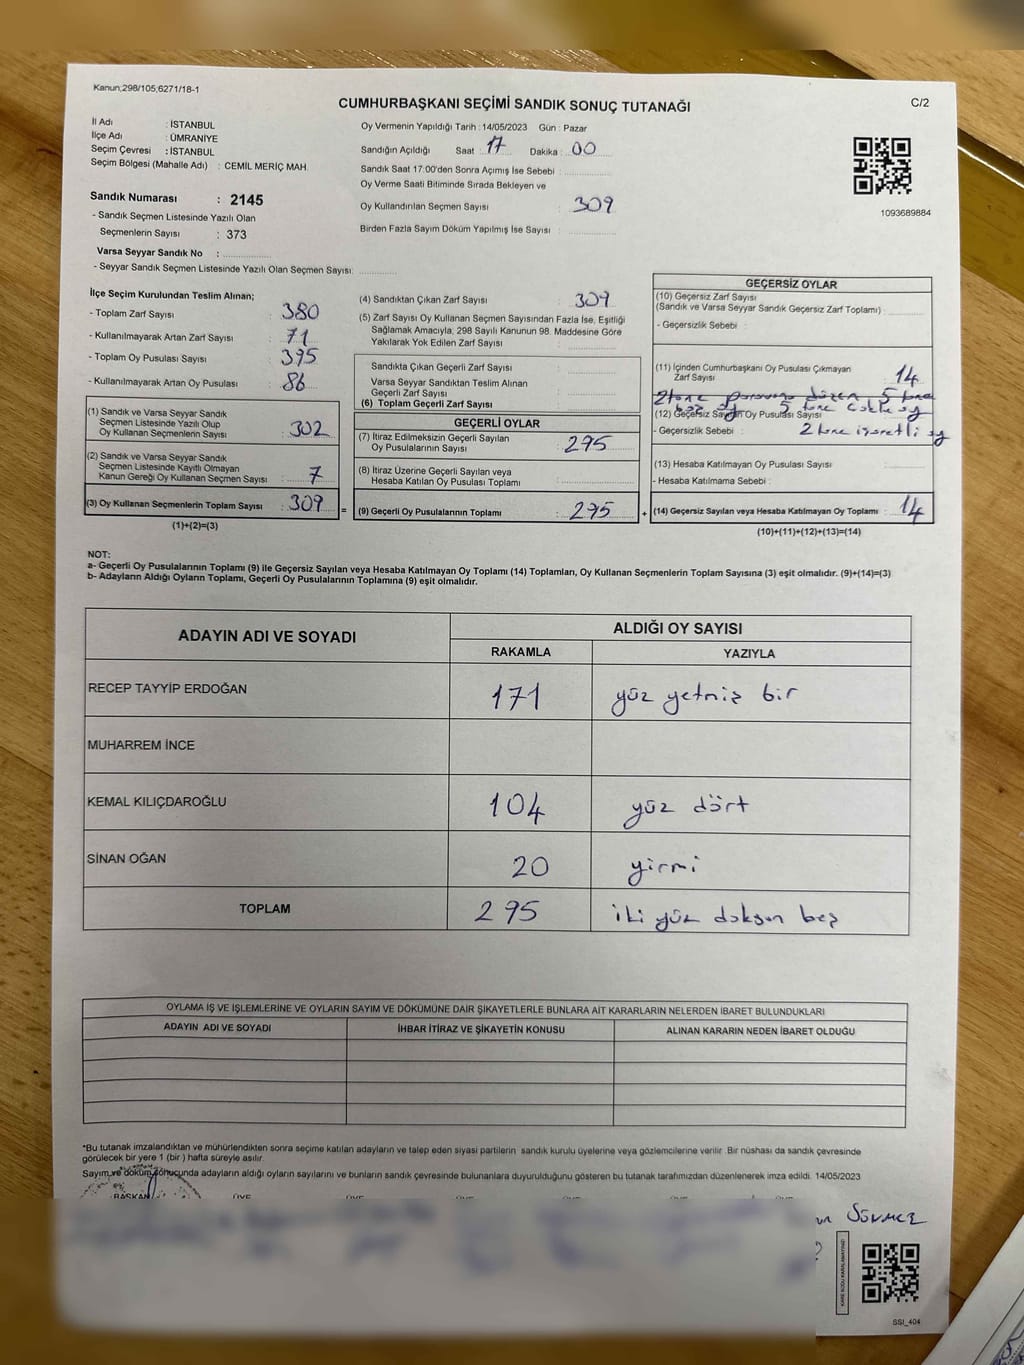 Kanun;298/105;6271/18-1
CUMHURBAŞKANI SEÇİMİ SANDIK SONUÇ TUTANAĞI
C/2
İl Adı : İSTANBUL
İlçe Adı : ÜMRANİYE
Seçim Çevresi : İSTANBUL
Seçim Bölgesi (Mahalle Adı) : CEMİL MERİÇ MAH.
Sandık Numarası : 2145
- Sandık Seçmen Listesinde Yazılı Olan
Seçmenlerin Sayısı : 373
Varsa Seyyar Sandık No :
- Seyyar Sandık Seçmen Listesinde Yazılı Olan Seçmen Sayısı:
Oy Vermenin Yapıldığı Tarih : 14/05/2023 Gün : Pazar
Sandığın Açıldığı Saat : 17 Dakika : 00
Sandık Saat 17:00'den Sonra Açımış İse Sebebi :
Oy Verme Saati Bitiminde Sırada Bekleyen ve
Oy Kullandırılan Seçmen Sayısı 309
Birden Fazla Sayım Döküm Yapılmış İse Sayısı :
1093689884
İlçe Seçim Kurulundan Teslim Alınan;
- Toplam Zarf Sayısı : 380
- Kullanılmayarak Artan Zarf Sayısı : 71
- Toplam Oy Pusulası Sayısı : 395
- Kullanılmayarak Artan Oy Pusulası : 86
(1) Sandık ve Varsa Seyyar Sandık
Seçmen Listesinde Yazılı Olup
Oy Kullanan Seçmenlerin Sayısı : 302
(2) Sandık ve Varsa Seyyar Sandık
Seçmen Listesinde Kayıtlı Olmayan
Kanun Gereği Oy Kullanan Seçmen Sayısı : 7
(3) Oy Kullanan Seçmenlerin Toplam Sayısı : 309 =
(1)+(2)=(3)
(4) Sandıktan Çıkan Zarf Sayısı : 309
(5) Zarf Sayısı Oy Kullanan Seçmen Sayısından Fazla İse, Eşitliği
Sağlamak Amacıyla; 298 Sayılı Kanunun 98. Maddesine Göre
Yakılarak Yok Edilen Zarf Sayısı :
Sandıkta Çıkan Geçerli Zarf Sayısı :
Varsa Seyyar Sandıktan Teslim Alınan
Geçerli Zarf Sayısı
(6) Toplam Geçerli Zarf Sayısı :
GEÇERLİ OYLAR
(7) İtiraz Edilmeksizin Geçerli Sayılan
Oy Pusulalarının Sayısı : 295
(8) İtiraz Üzerine Geçerli Sayılan veya
Hesaba Katılan Oy Pusulası Toplamı
(9) Geçerli Oy Pusulalarının Toplamı : 295 +
GEÇERSİZ OYLAR
(10) Geçersiz Zarf Sayısı
(Sandık ve Varsa Seyyar Sandık Geçersiz Zarf Toplamı) :
- Geçersizlik Sebebi :
(11) İçinden Cumhurbaşkanı Oy Pusulası Çıkmayan
Zarf Sayısı 14
2 tane düzen 5 tane
boş oy 5 tane
(12) Geçersiz Sayılan Oy Pusulası Sayısı
- Geçersizlik Sebebi : 2 tane işaretli oy
(13) Hesaba Katılmayan Oy Pusulası Sayısı
- Hesaba Katılmama Sebebi :
(14) Geçersiz Sayılan veya Hesaba Katılmayan Oy Toplamı : 14
(10)+(11)+(12)+(13)=(14)
NOT:
a- Geçerli Oy Pusulalarının Toplamı (9) ile Geçersiz Sayılan veya Hesaba Katılmayan Oy Toplamı (14) Toplamları, Oy Kullanan Seçmenlerin Toplam Sayısına (3) eşit olmalıdır. (9)+(14)=(3)
b- Adayların Aldığı Oyların Toplamı, Geçerli Oy Pusulalarının Toplamına (9) eşit olmalıdır.
ADAYIN ADI VE SOYADI
ALDIĞI OY SAYISI
RAKAMLA YAZIYLA
RECEP TAYYİP ERDOĞAN 171 yüz yetmiş bir
MUHARREM İNCE
KEMAL KILIÇDAROĞLU 104 yüz dört
SİNAN OĞAN 20 yirmi
TOPLAM 295 iki yüz doksan beş
OYLAMA İŞ VE İŞLEMLERİNE VE OYLARIN SAYIM VE DÖKÜMÜNE DAİR ŞİKAYETLERLE BUNLARA AİT KARARLARIN NELERDEN İBARET BULUNDUKLARI
ADAYIN ADI VE SOYADI İHBAR İTİRAZ VE ŞİKAYETİN KONUSU ALINAN KARARIN NEDEN İBARET OLDUĞU
*Bu tutanak imzalandıktan ve mühürlendikten sonra seçime katılan adayların ve talep eden siyasi partilerin sandık kurulu üyelerine veya gözlemcilerine verilir. Bir nüshası da sandık çevresinde
görülecek bir yere 1 (bir) hafta süreyle asılır.
Sayım ve döküm sonucunda adayların aldığı oyların sayılarını ve bunların sandık çevresinde bulunanlara duyurulduğunu gösteren bu tutanak tarafımızdan düzenlenerek imza edildi. 14/05/2023
BAŞKAN ÜYE ÜYE ÜYE ÜYE ÜYE ÜYE
KARE KODU KARALAMAYINIZ!
SSI_404